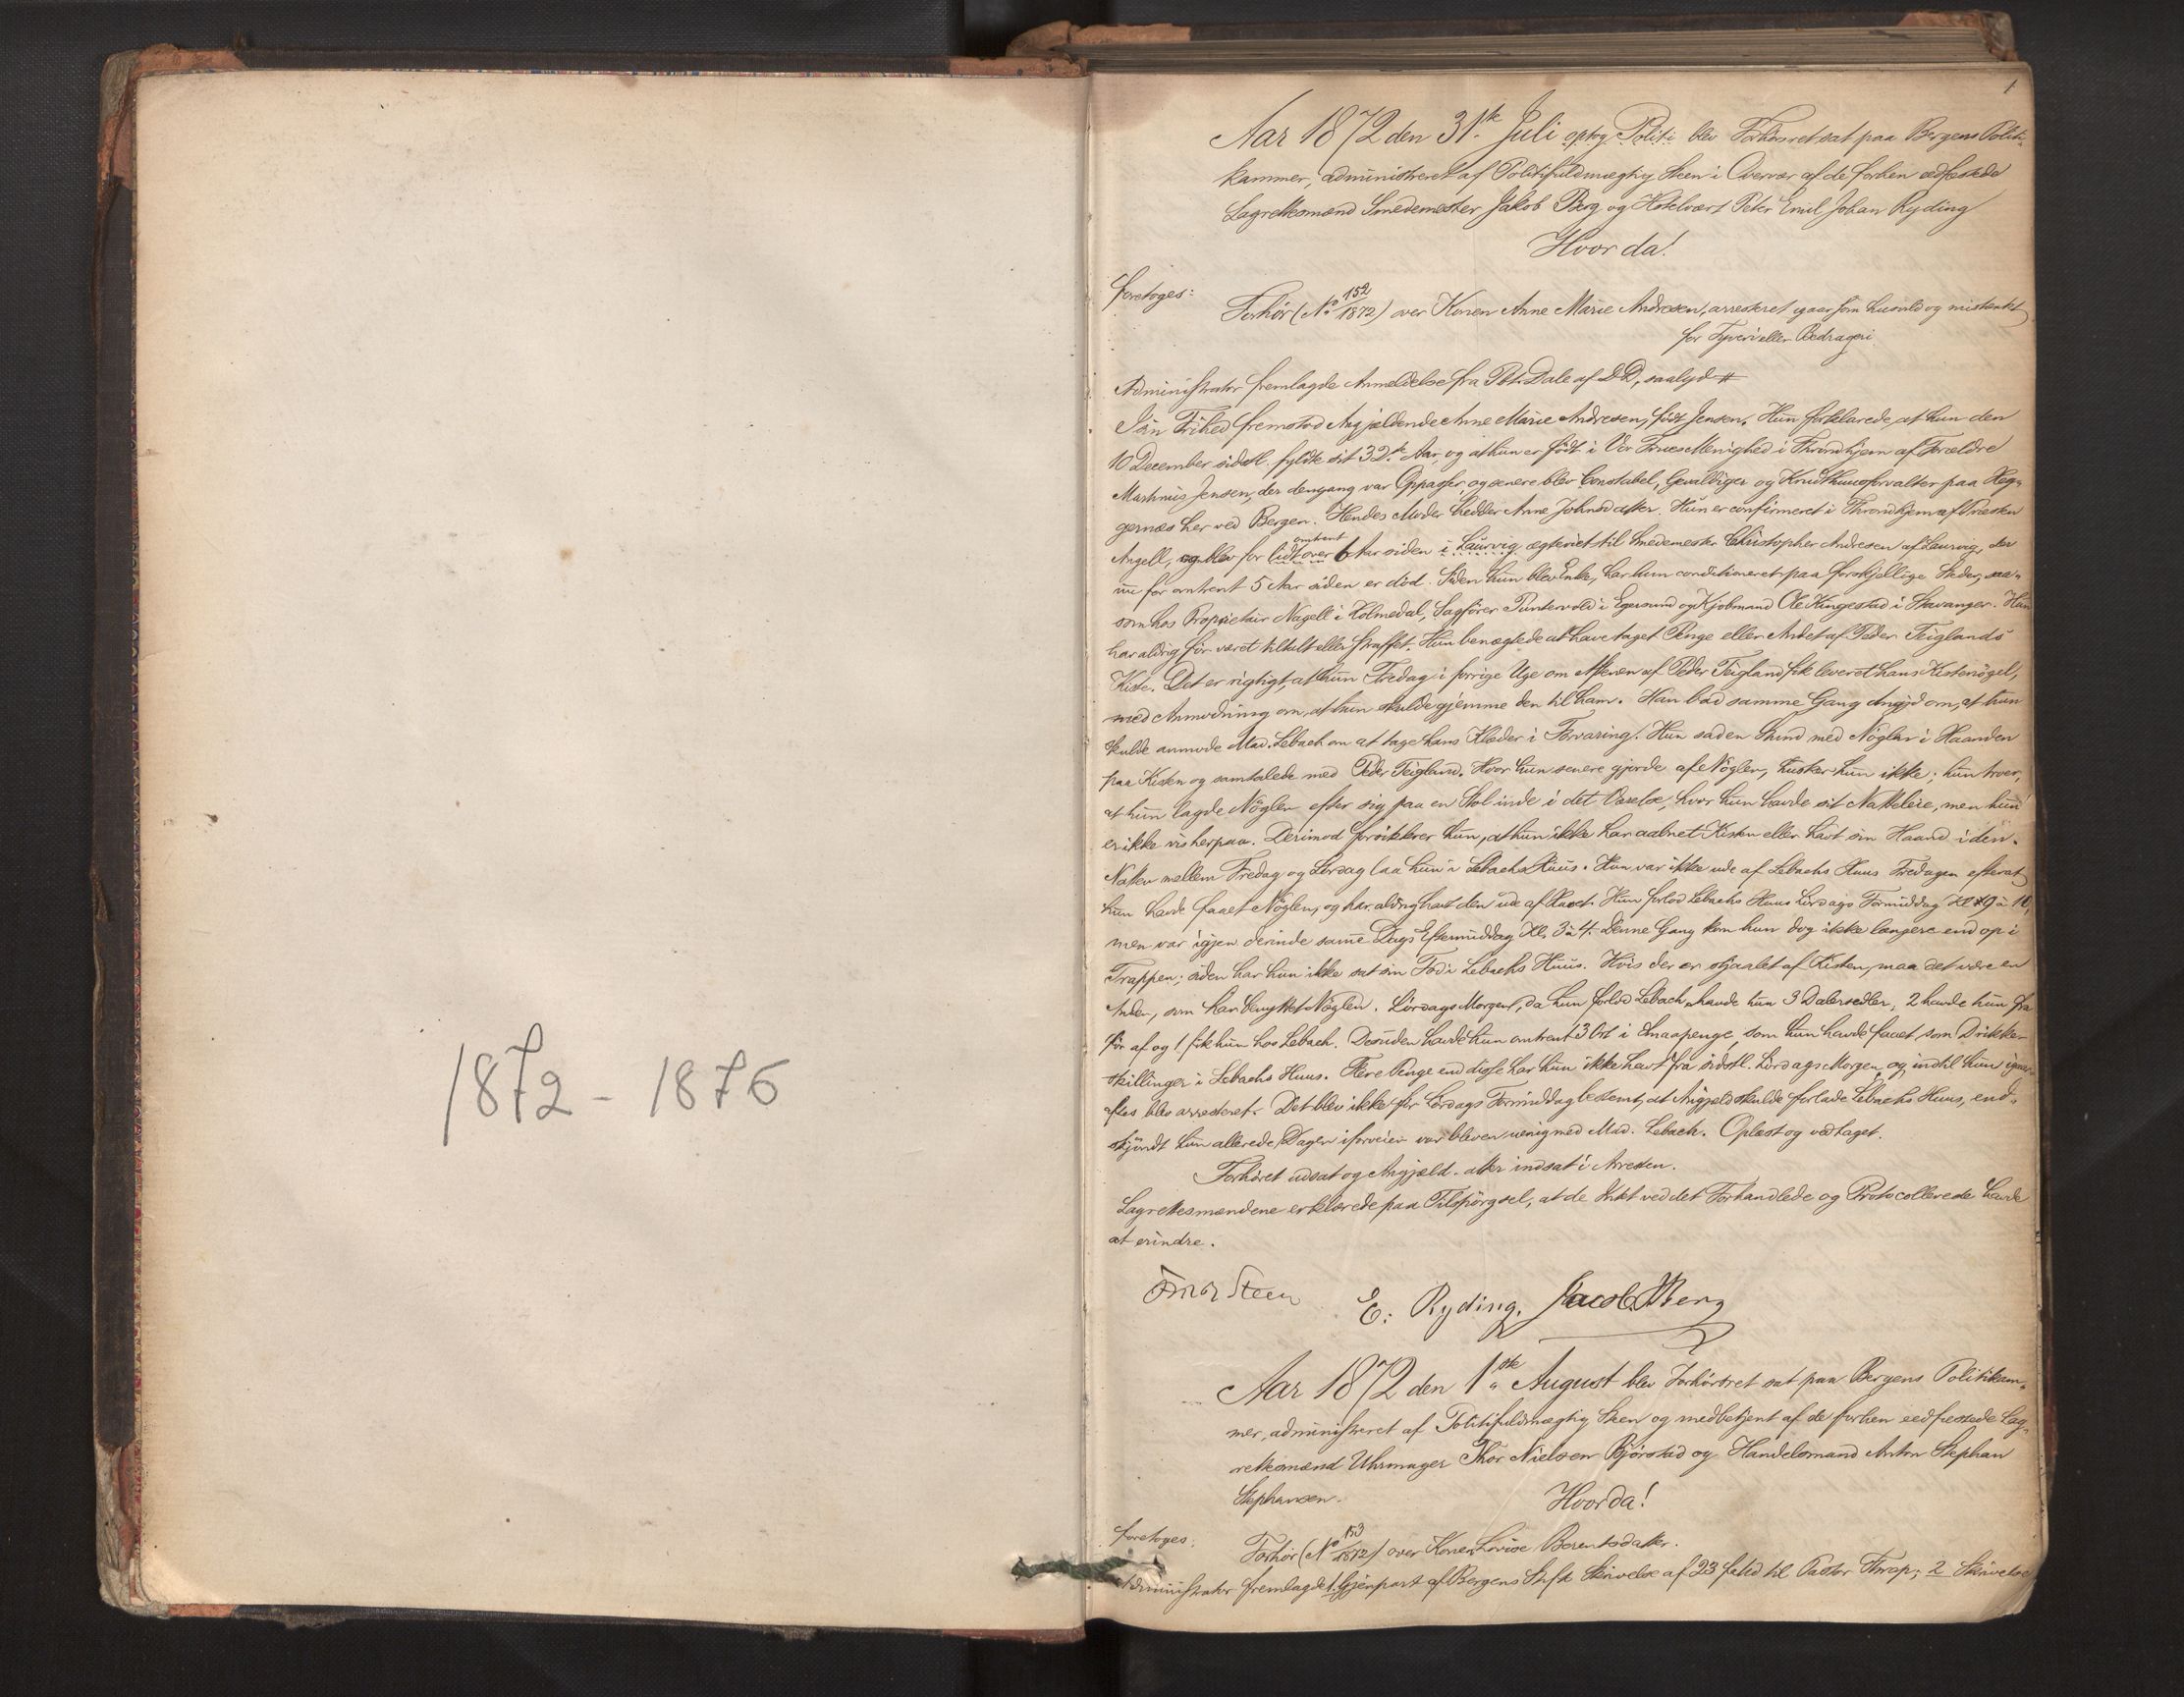 1872 - 1876
1
Aar 1872 den 31te Juli optog Politi blev Forhørsret sat paa Bergens Politi-
kammer, administreret af Politifuldmægtig Steen i Overvær af de forhen edfæstede
Lagrettesmænd Smedemester Jakob Berg og Hotelvært Peter Emil Johan Ryding
Hvor da!
foretoges:
Forhør (No 152/1872) over Konen Anne Marie Andresen, arresteret igaar som husvild og mistænkt
for Tyveri eller Bedrageri.
Administrator fremlagde Anmeldelse fra Pbt. Dale af DD, saalyd #
I sin Frihed fremstod Angjældende Anne Marie Andresen, født Jensen. Hun forklarede, at hun den
10 December sidstl. fyldte sit 32te Aar, og at hun er født i Vor Frues Menighed i Throndhjem af Forældre
Martinus Jensen, der dengang var Oppasser, og senere blev Constabel, Gevaldiger og Krudthuusforvalter paa Heg-
gernæs her ved Bergen. Hendes Moder hedder Anne Johnsdatter. Hun er confirmeret i Throndhjem af Præsten
Angell, og blev for lidt over omtrent 6 Aar siden i Laurvig ægteviet til Smedemester Christopher Andresen af Laurvig, der
nu for omtrent 5 Aar siden er død. Siden hun blev Enke, har hun conditioneret paa forskjellige Steder, saa-
som hos Proprietair Nagell i Holmedal, Sagfører Puntervold i Egersund og Kjøbmand Ole Kingestad i Stavanger. Hun
har aldrig før været tiltalt eller straffet. Hun benægtede at have taget Penge eller Andet af Peder Teiglands
Kiste. Det er rigtigt, at hun Fredag i forrige Uge om Aftenen af Peder Teigland fik leveret hans Kistenøgel,
med Anmodning om, at hun skulde gjemme den til ham. Han bad samme Gang Angjd om, at hun
skulde anmode Mad. Lebach om at tage hans Klæder i Forvaring. Hun sad en Stund med Nøglen i Haanden
paa Kisten og samtalede med Peder Teigland. Hvor hun senere gjorde af Nøglen, husker hun ikke; hun troer,
at hun lagde Nøglen efter sig paa en Stol inde i det Værelse, hvor hun havde sit Natteleie, men hun
er ikke vis herpaa. Derimod forsikkrer hun, at hun ikke har aabnet Kisten eller havt sin Haand i den.
Natten mellem Fredag og Lørdag laa hun i Lebachs Huus. Hun var ikke ude af Lebachs Huus Fredagen efterat
hun havde faaet Nøglen, og har aldrig havt den ude af Huset. Hun forlod Lebachs Huus Lørdags Formiddag Kl. 9 à 10,
men var igjen derinde samme Dags Eftermiddag Kl. 3 à 4. Denne Gang kom hun dog ikke længere end op i
Trappen; siden har hun ikke sat sin Fod i Lebachs Huus. Hvis der er stjaalet af Kisten, maa det være en
Anden, som har benyttet Nøglen. Lørdags Morgen, da hun forlod Lebach havde hun 3 Dalersedler, 2 havde hun fra
før af og 1 fik hun hos Lebach. Desuden havde hun omtrent 3 Ort i Smaapenge, som hun havde faaet som Drikke-
skillinger i Lebachs Huus. Flere Penge end disse har hun ikke havt fra sidstl. Lørdags Morgen og indtil hun igaar-
aftes blev arresteret. Det blev ikke før Lørdags Formiddag bestemt, at Angjæld skulde forlade Lebachs Huus, end-
skjøndt hun allerede Dagen iforveien var bleven uenig med Mad. Lebach. Oplæst og vedtaget.
Forhøret udsat og Angjæld. atter indsat i Arresten.
Lagrettesmændene erklærede paa Tilspørgsel, at de Intet ved det Forhandlede og Protocollerede havde
at erindre.
Steen E. Ryding. Jacob Berg
Aar 1872 den 1ste August blev Forhørsret sat paa Bergens Politikam-
mer, administreret af Politifuldmægtig Steen og medbetjent af de forhen eedfæstede Lag-
rettesmænd Uhrmager Thor Nielsen Bjørstad og Handelsmand Anton Stephan
Stephansen.
Hvor da!
foretoges:
Forhør (No 153/1872) over Konen Lovise Berentsdatter.
Administrator fremlagde 1. Gjenpart af Bergens Stifts Skrivelse af 23 f. til Pastor Thrap; 2 Skrivelse